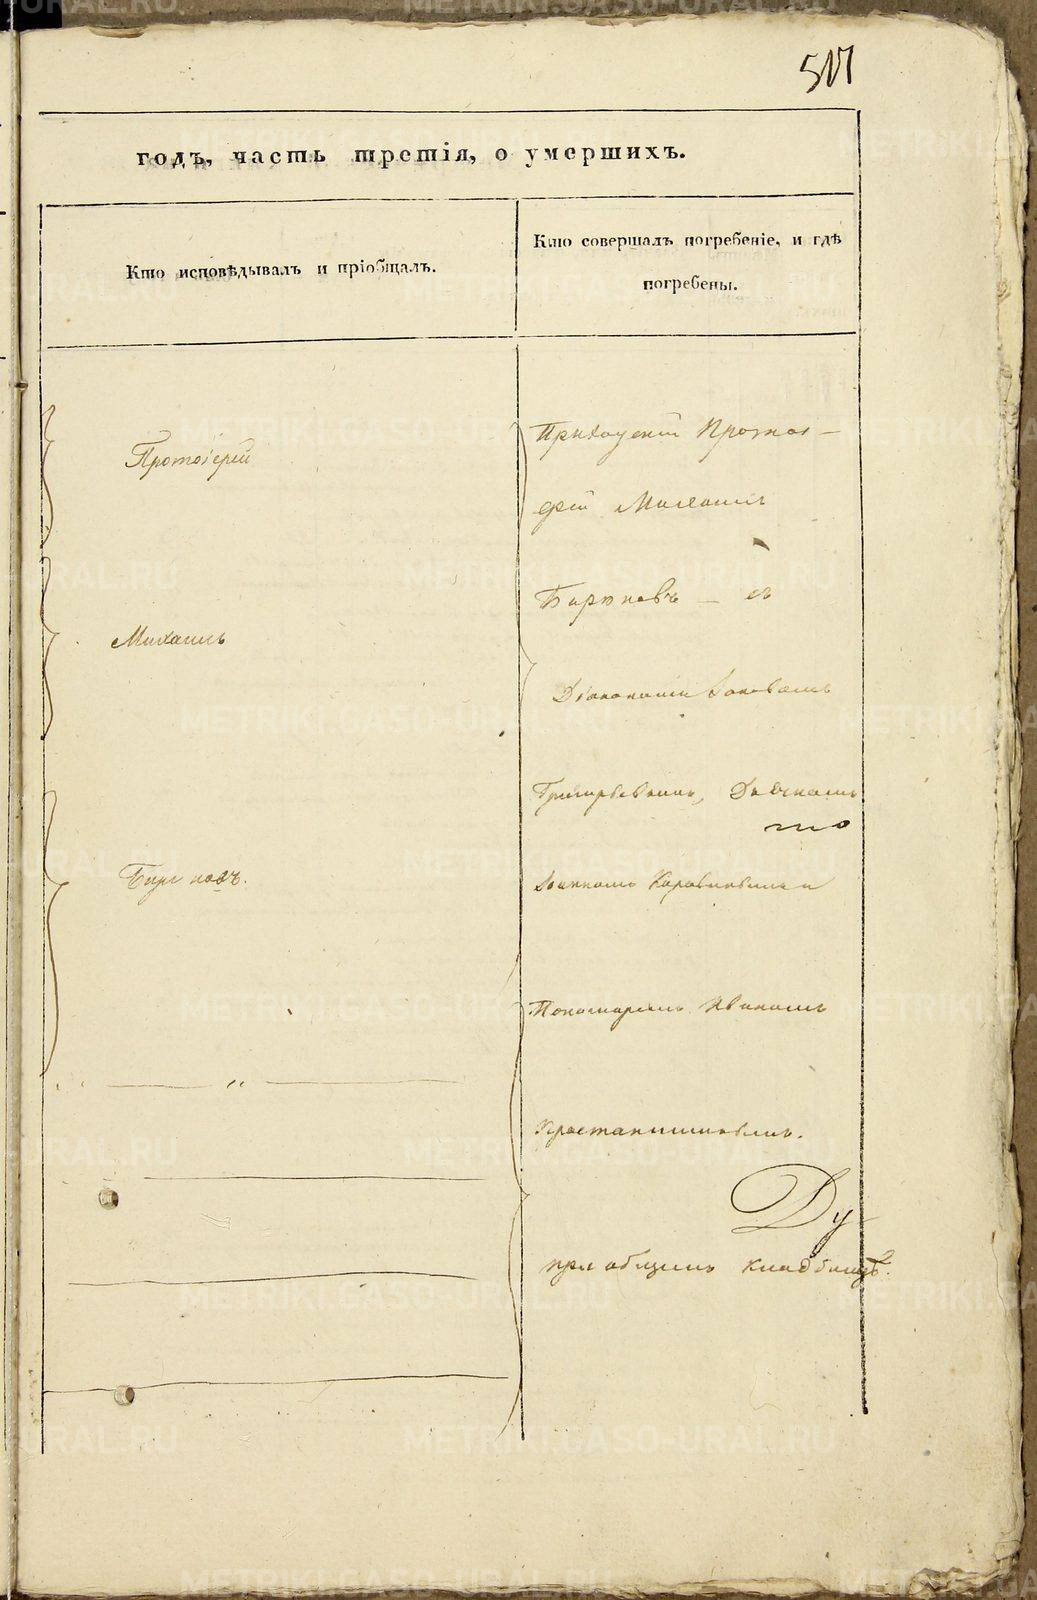 517
годъ, часть третія, о умершихъ.
Кто исповѣдывалъ и пріобщалъ.
Кто совершалъ погребеніе, и гдѣ
погребены.
Протоіерей
Михаилъ
Бирюковъ.
Приходскій Протоі-
ерей Михаилъ
Бирюковъ — съ
Діакономъ Іаковомъ
Григорьевымъ, Дьячкомъ
Іоанномъ и
Пономаремъ Иваномъ
Ду-
при общемъ кладбищѣ.
METRIKI.GASO-URAL.RU